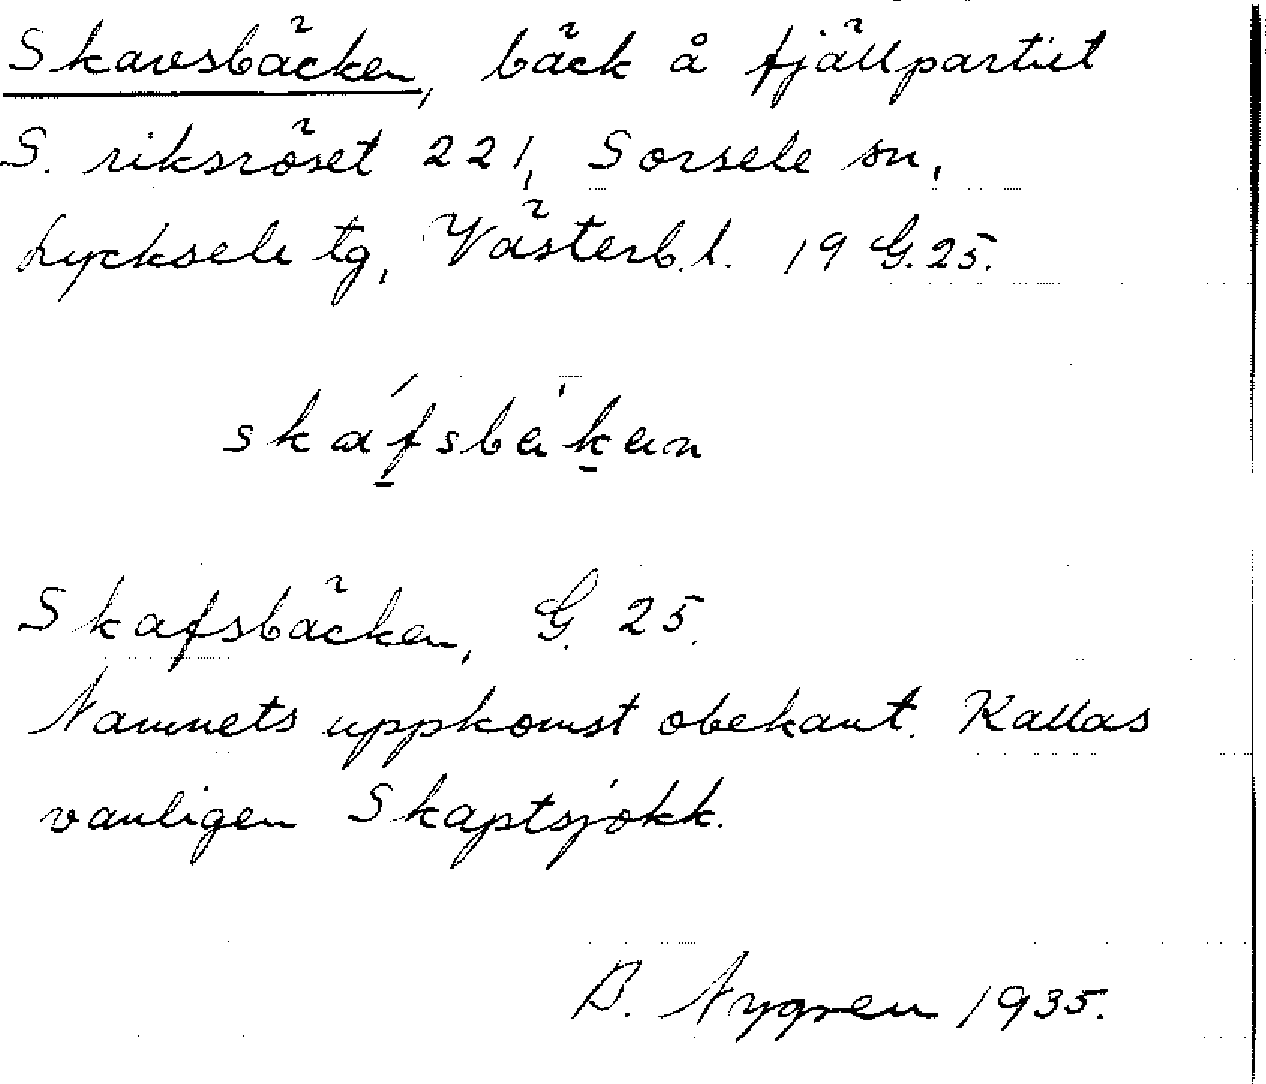 Skavsbäcken, bäck å fjällpartiet
S. riksröset 221, Sorsele sn,
Lycksele tg, Västerb. l. 19 G. 25.
Skafsbäcken, G. 25.
Namnets uppkomst obekant. Kallas
vanligen Skaptsjokk.
B. Nygren 1935.